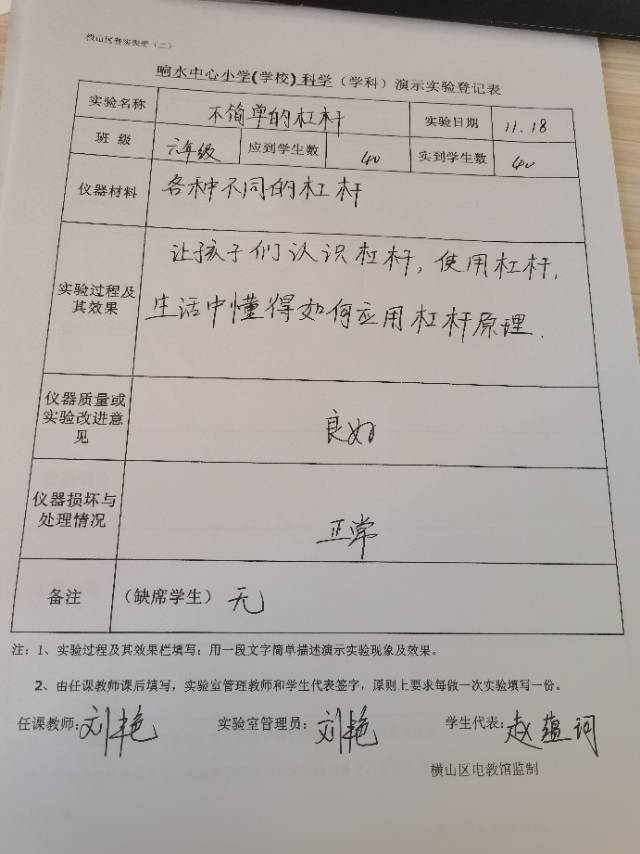 横山区
响水中心小学(学校)科学(学科)演示实验登记表
实验名称 不简单的杠杆 实验日期 11.18
班 级 六年级 应到学生数 40 实到学生数 40
仪器材料 各种不同的杠杆
实验过程及
其效果
让孩子们认识杠杆，使用杠杆，
生活中懂得如何应用杠杆原理.
仪器质量或
实验改进意
见
良好
仪器损坏与
处理情况
正常
备注 (缺席学生) 无
注：1、实验过程及其效果栏填写：用一段文字简单描述演示实验现象及效果。
2、由任课教师课后填写，实验室管理教师和学生代表签字，原则上要求每做一次实验填写一份。
任课教师:刘艳 实验室管理员:刘艳 学生代表:赵蕴词
横山区电教馆监制